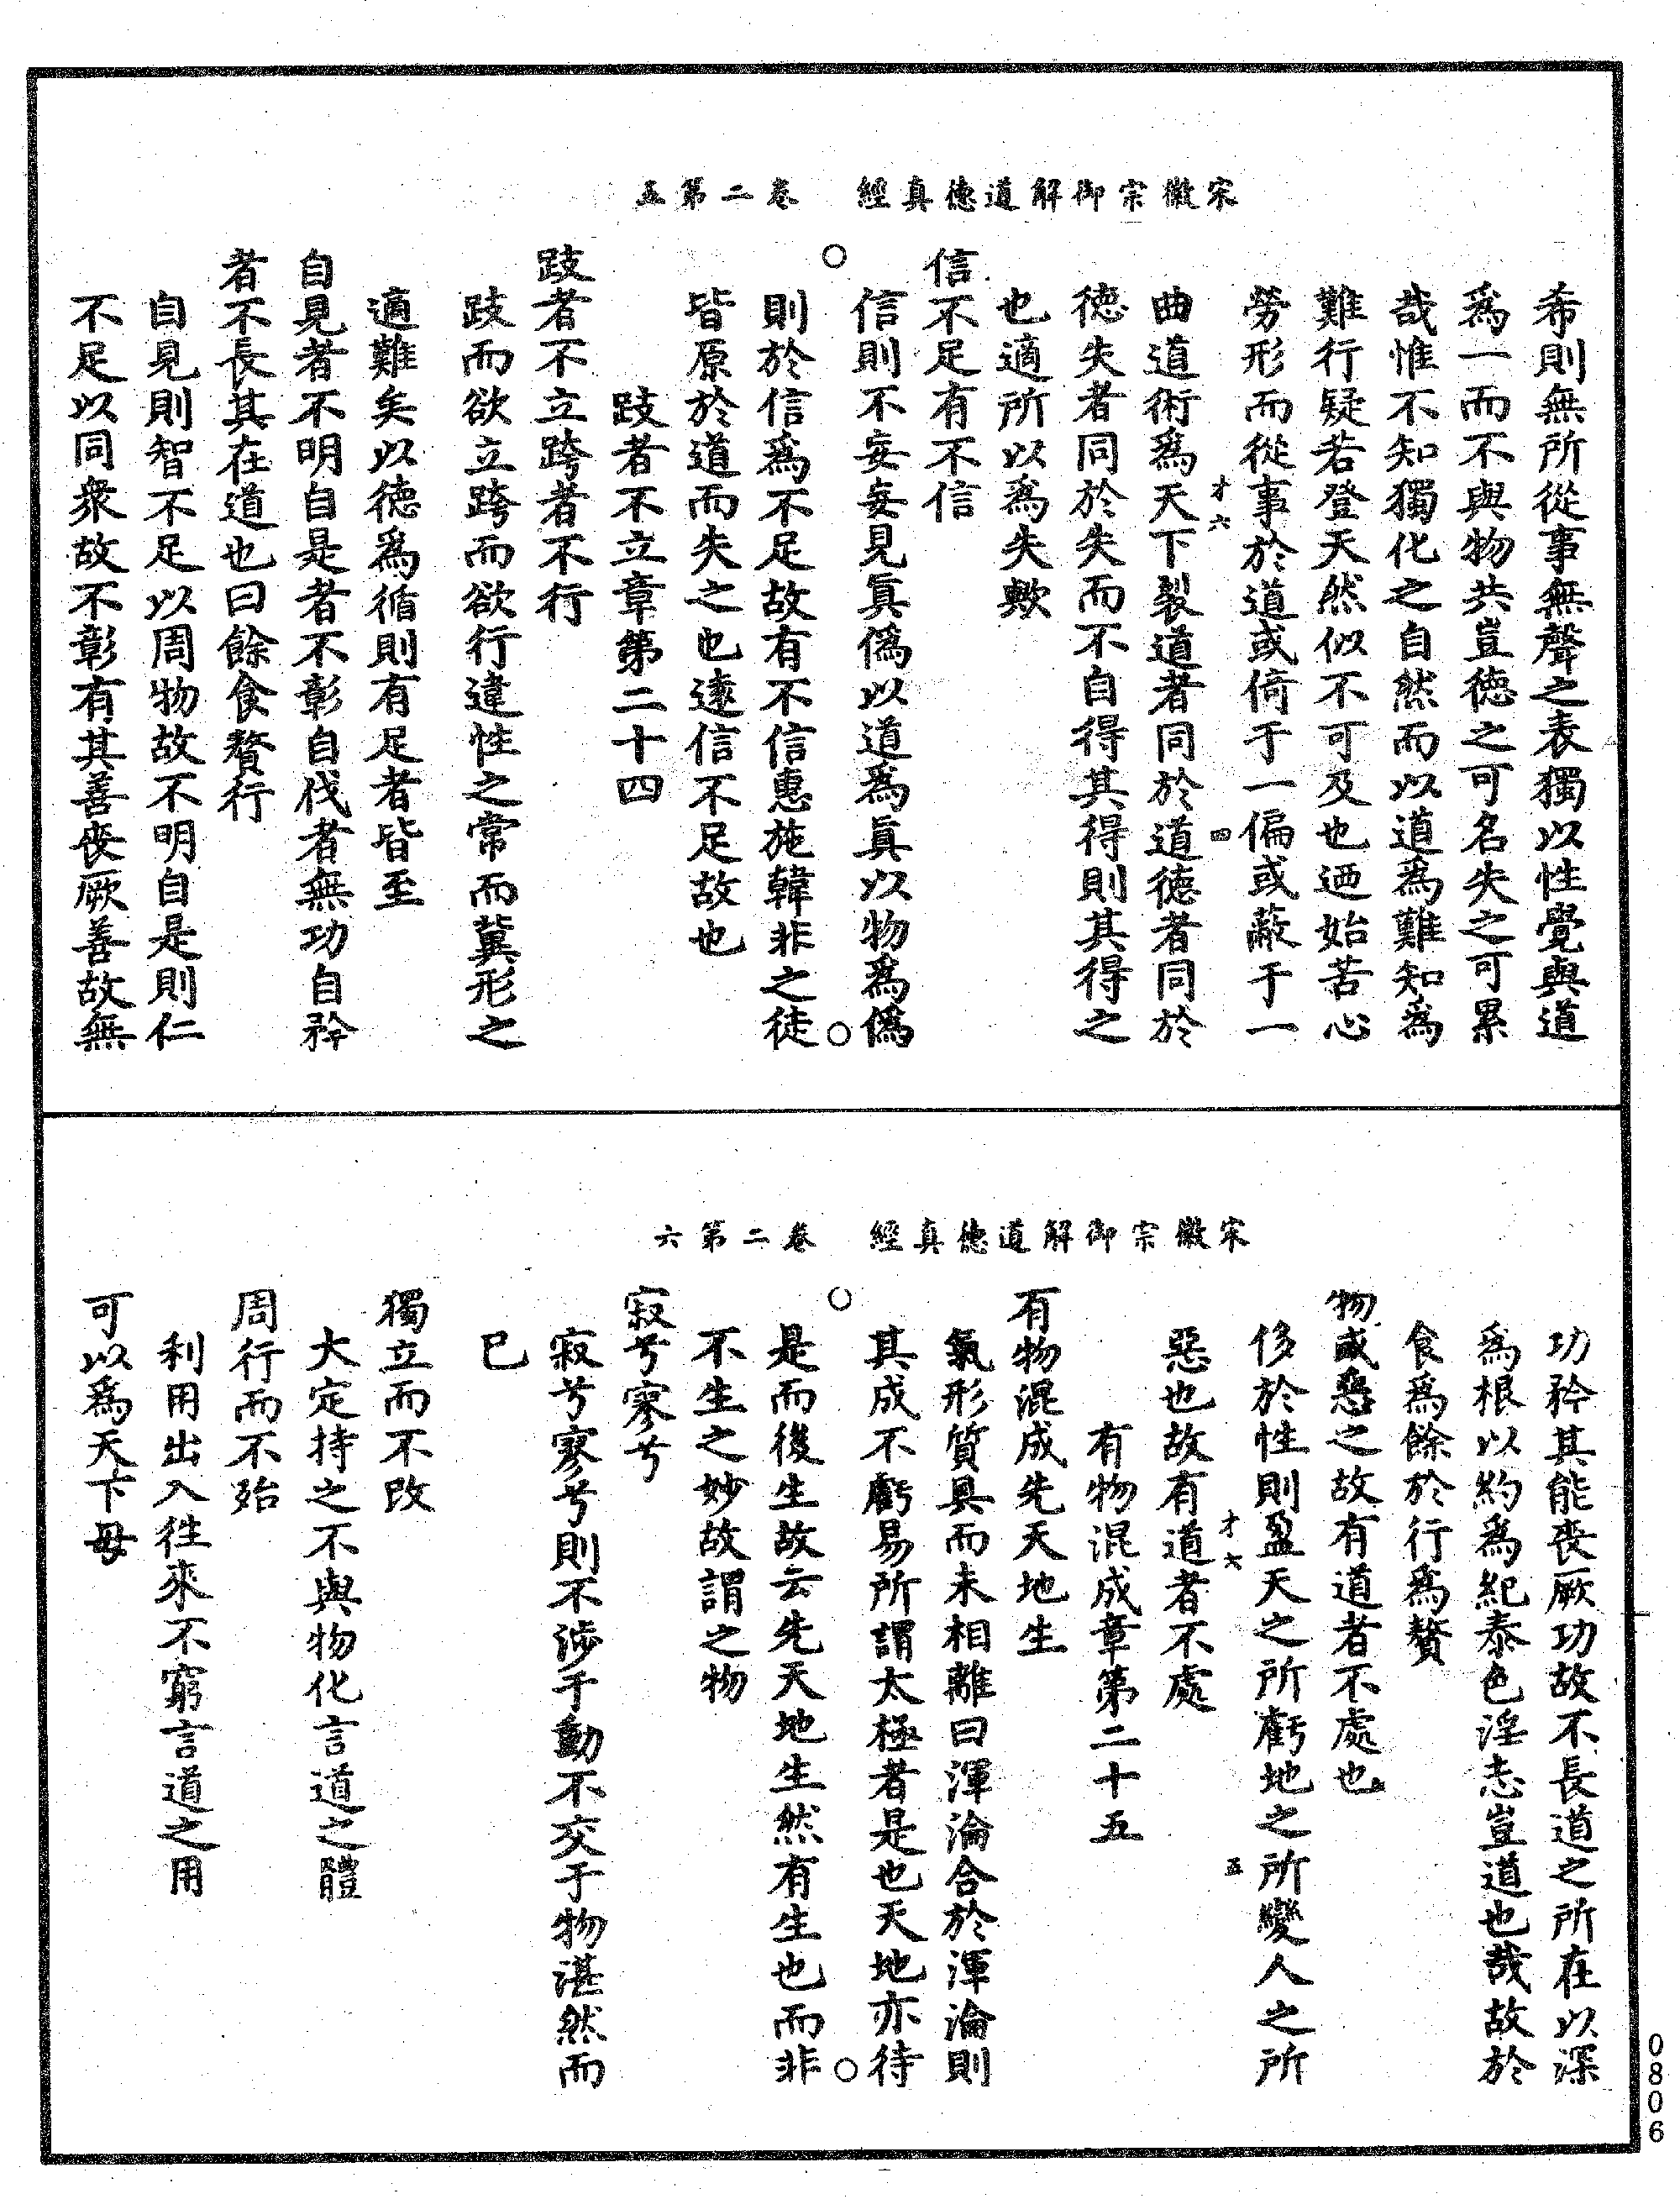 宋徽宗御解道德真經　卷二第五
希則無所從事無聲之表獨以性覺與道
爲一而不與物共豈德之可名失之可累
哉惟不知獨化之自然而以道爲難知爲
難行疑若登天然似不可及也迺始苦心
勞形而從事於道或倚于一偏或蔽于一
才六　四
曲道術爲天下裂道者同於道德者同於
德失者同於失而不自得其得則其得之
也適所以爲失歟
信不足有不信
信則不妄妄見真僞以道爲真以物爲僞
則於信爲不足故有不信惠施韓非之徒
皆原於道而失之也遠信不足故也
跂者不立章第二十四
跂者不立跨者不行
跂而欲立跨而欲行違性之常而冀形之
適難矣以德爲循則有足者皆至
自見者不明自是者不彰自伐者無功自矜
者不長其在道也曰餘食贅行
自見則智不足以周物故不明自是則仁
不足以同衆故不彰有其善喪厥善故無
宋徽宗御解道德真經　卷二第六
功矜其能喪厥功故不長道之所在以深
爲根以約爲紀泰色淫志豈道也哉故於
食爲餘於行爲贅
物或惡之故有道者不處也
侈於性則盈天之所虧地之所變人之所
才六　五
惡也故有道者不處
有物混成章第二十五
有物混成先天地生
氣形質具而未相離曰渾淪合於渾淪則
其成不虧易所謂太極者是也天地亦待
是而後生故云先天地生然有生也而非
不生之妙故謂之物
寂兮寥兮
寂兮寥兮則不涉于動不交于物湛然而
已
獨立而不改
大定持之不與物化言道之體
周行而不殆
利用出入往來不窮言道之用
可以爲天下母
0806